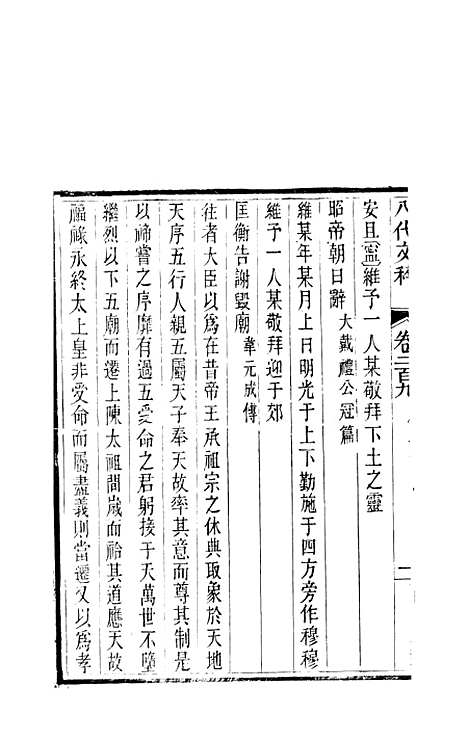 八代文粹 卷二百九 二
安且寍維予一人某敬拜下土之靈
昭帝朝日辭 大戴禮公冠篇
維某年某月上日明光于上下勤施于四方旁作穆穆
維予一人某敬拜迎于郊
匡衡告謝毀廟 韋元成傳
往者大臣以為在昔帝王承祖宗之休典取象於天地
天序五行人親五屬天子奉天故率其意而尊其制是
以禘嘗之序靡有過五受命之君躬接于天萬世不墮
繼烈以下五廟而遷上陳太祖間歲而祫其道應天故
福祿永終太上皇非受命而屬盡義則當遷又以為孝